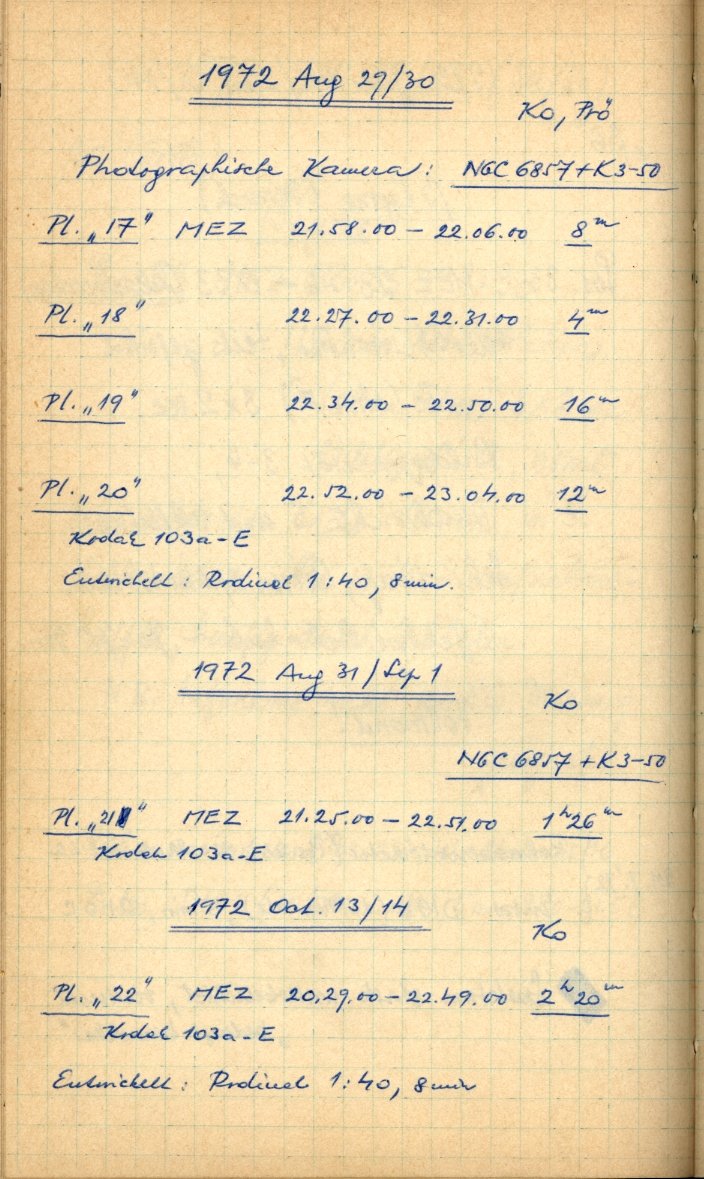 1972 Aug 29/30
Ko, Prö
Photographische Kamera: NGC 6857+K3-50
Pl. „17" MEZ 21.58.00 – 22.06.00 8ᵐ
Pl. „18" 22.27.00 – 22.31.00 4ᵐ
Pl. „19" 22.34.00 – 22.50.00 16ᵐ
Pl. „20" 22.52.00 – 23.04.00 12ᵐ
Kodak 103a-E
Entwickelt: Rodinal 1:40, 8 min.
1972 Aug 31/Sep 1
Ko
NGC 6857 + K3-50
Pl. „21" MEZ 21.25.00 – 22.51.00 1ʰ26ᵐ
Kodak 103a-E
1972 Oct. 13/14
Ko
Pl. „22" MEZ 20.29.00 – 22.49.00 2ʰ20ᵐ
Kodak 103a-E
Entwickelt: Rodinal 1:40, 8 min